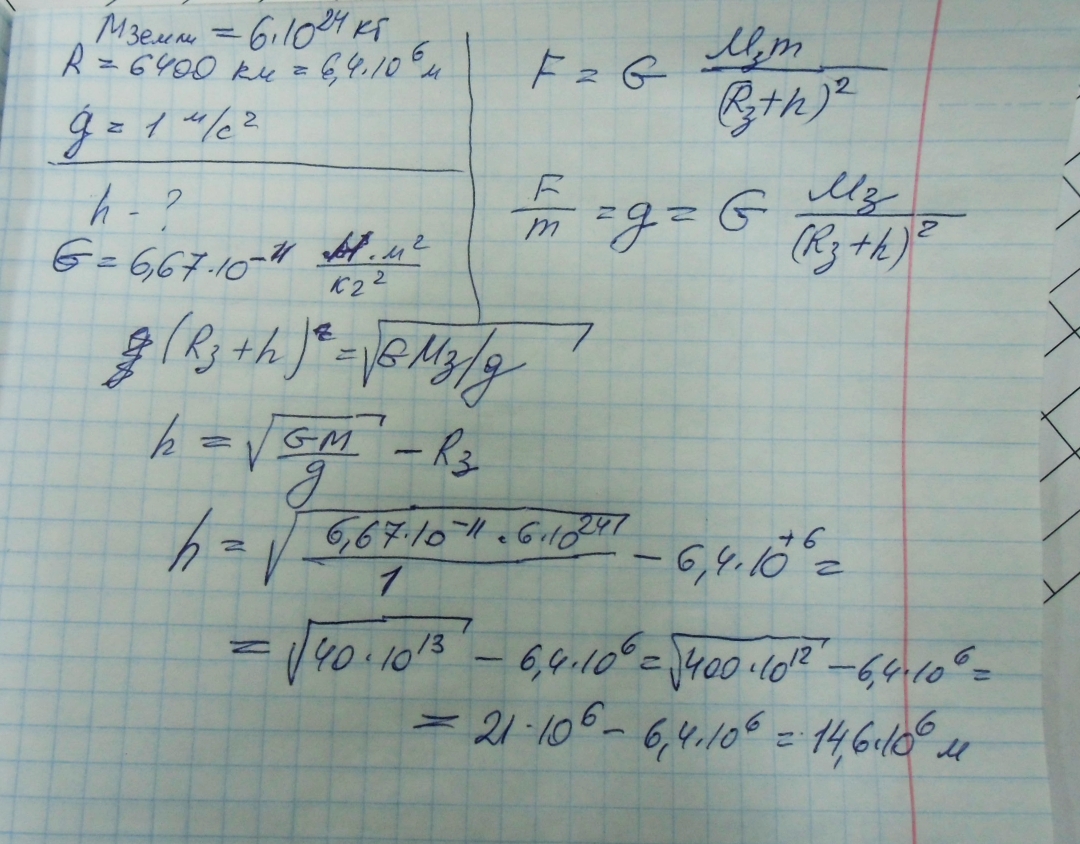 Mземли = 6·10²⁴ кг
R = 6400 км = 6,4·10⁶ м
g = 1 м/с²
h - ?
G = 6,67·10⁻¹¹ Н·м²/кг²
F = G Mзm/(Rз+h)²
F/m = g = G Mз/(Rз+h)²
(Rз+h) = √(GMз/g)
h = √(GM/g) − Rз
h = √(6,67·10⁻¹¹·6·10²⁴/1) − 6,4·10⁺⁶ =
= √(40·10¹³) − 6,4·10⁶ = √(400·10¹²) − 6,4·10⁶ =
= 21·10⁶ − 6,4·10⁶ = 14,6·10⁶ м